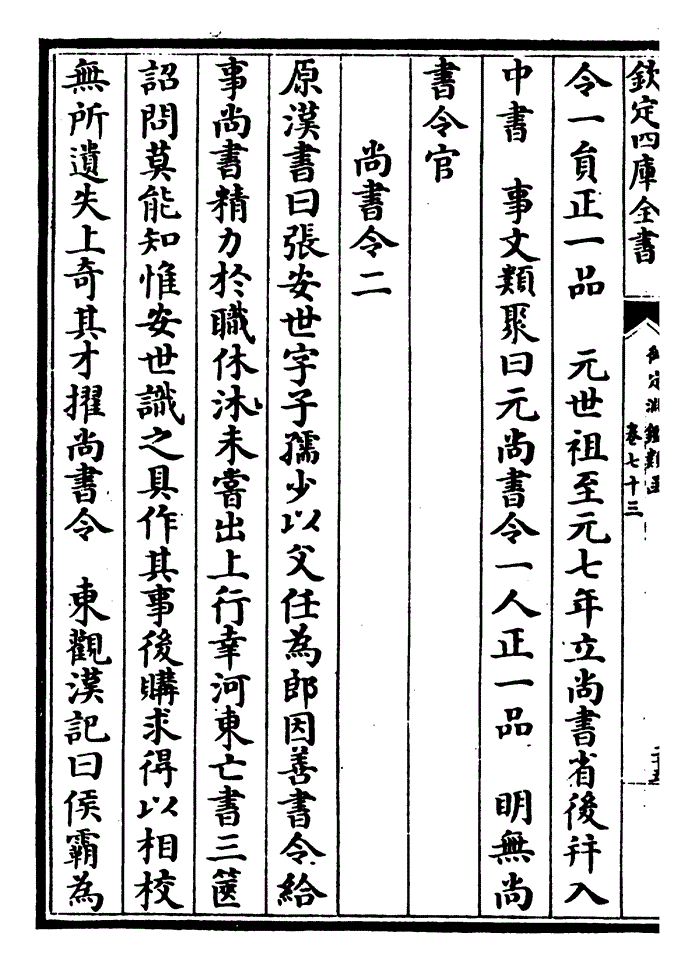 欽定四庫全書
御定淵鑑類函
卷七十三
令一員正一品　元世祖至元七年立尚書省後并入
中書　事文類聚曰元尚書令一人正一品　明無尚
書令官
尚書令二
原漢書曰張安世字子孺少以父任為郎因善書令給
事尚書精力於職休沐未嘗出上行幸河東亡書三篋
詔問莫能知惟安世識之具作其事後購求得以相校
無所遺失上奇其才擢尚書令　東觀漢記曰侯霸為